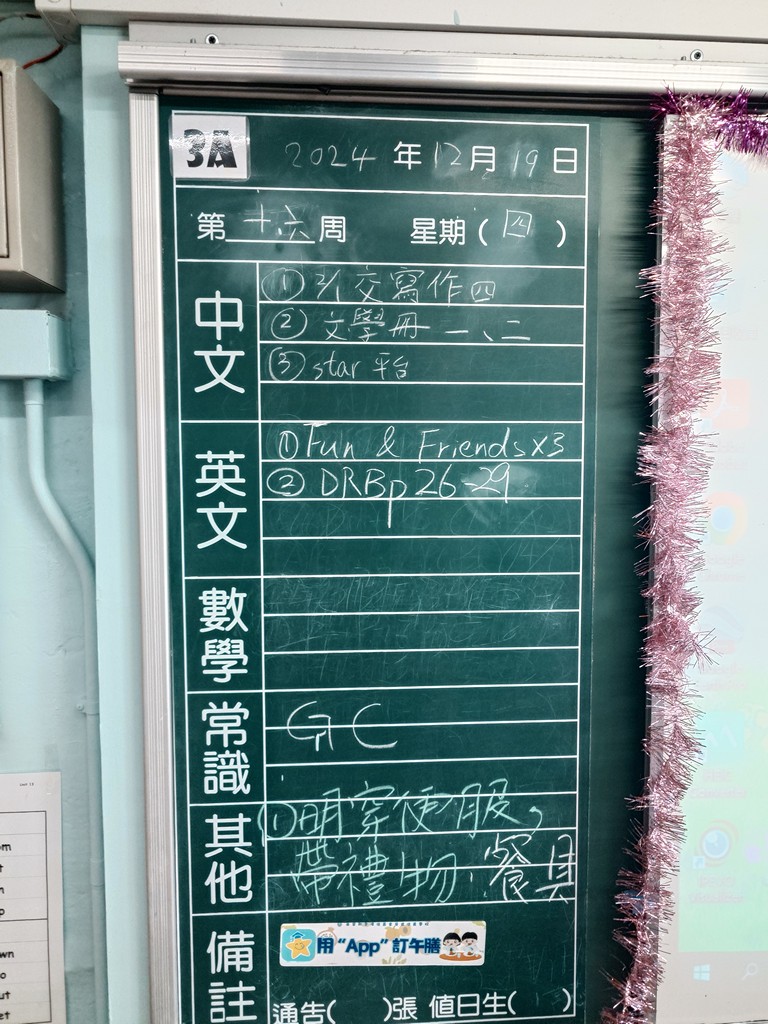 3A 2024 年 12 月 19 日
第 十六 周 星期 ( 四 )
中文
① 2/1 交寫作四
② 文學冊 一、二
③ star 平台
英文
① Fun & Friends x3
② DRB p26-29
數學
常識
GC
其他
① 明穿便服,
帶禮物、餐具
備註
用 “App” 訂午膳
通告( )張 值日生( )